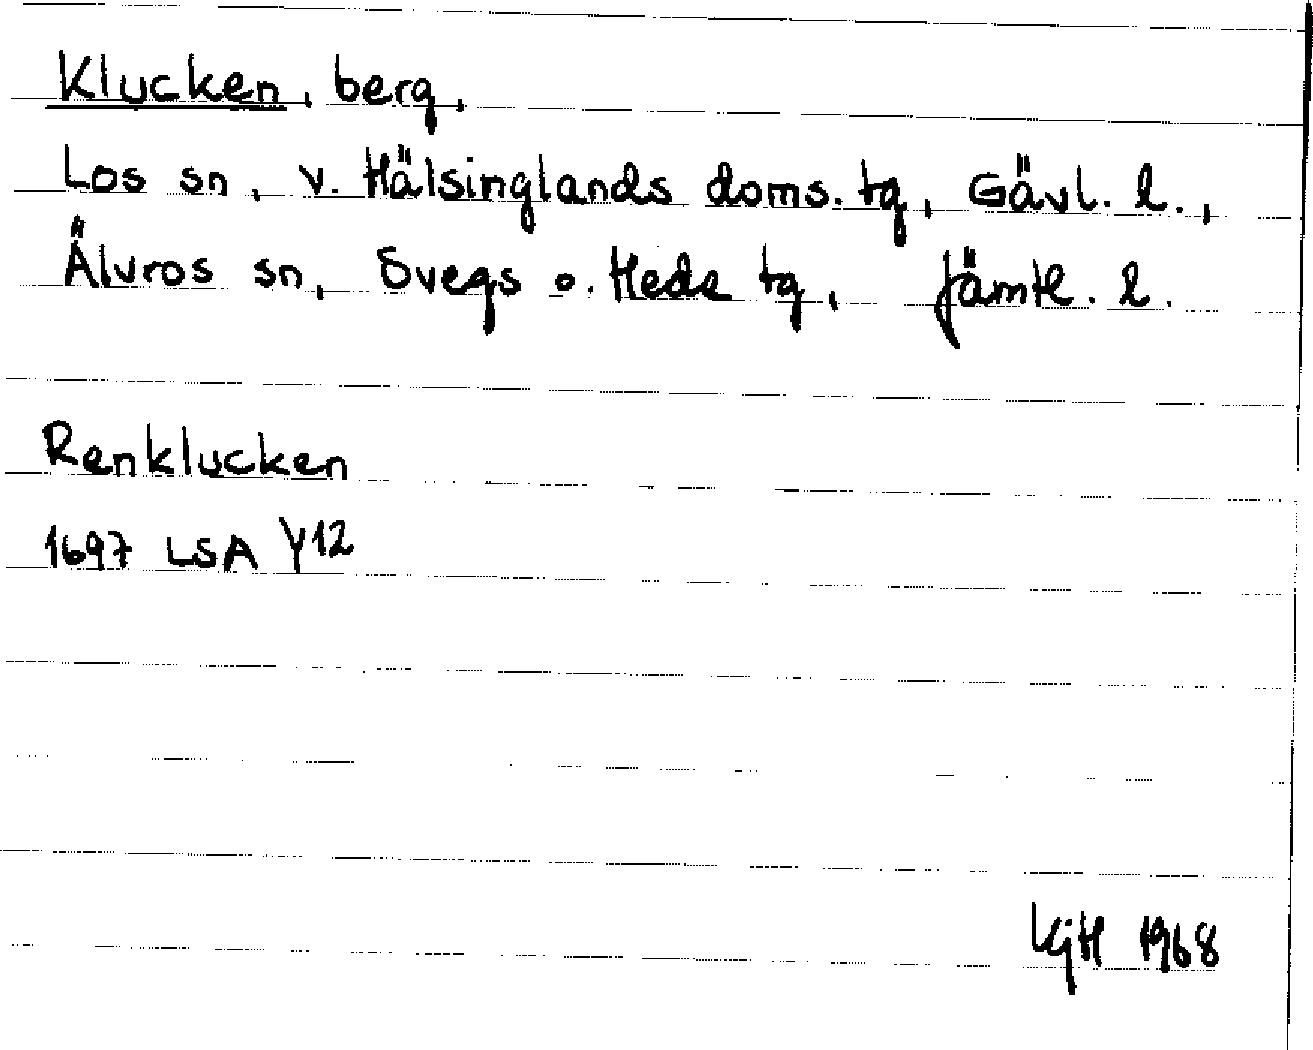 Klucken, berg,
Los sn, v. Hälsinglands doms. tg, Gävl. l.,
Älvros sn, Svegs o. Hede tg, Jämtl. l.
Renklucken
1697 LSA Y12
1968